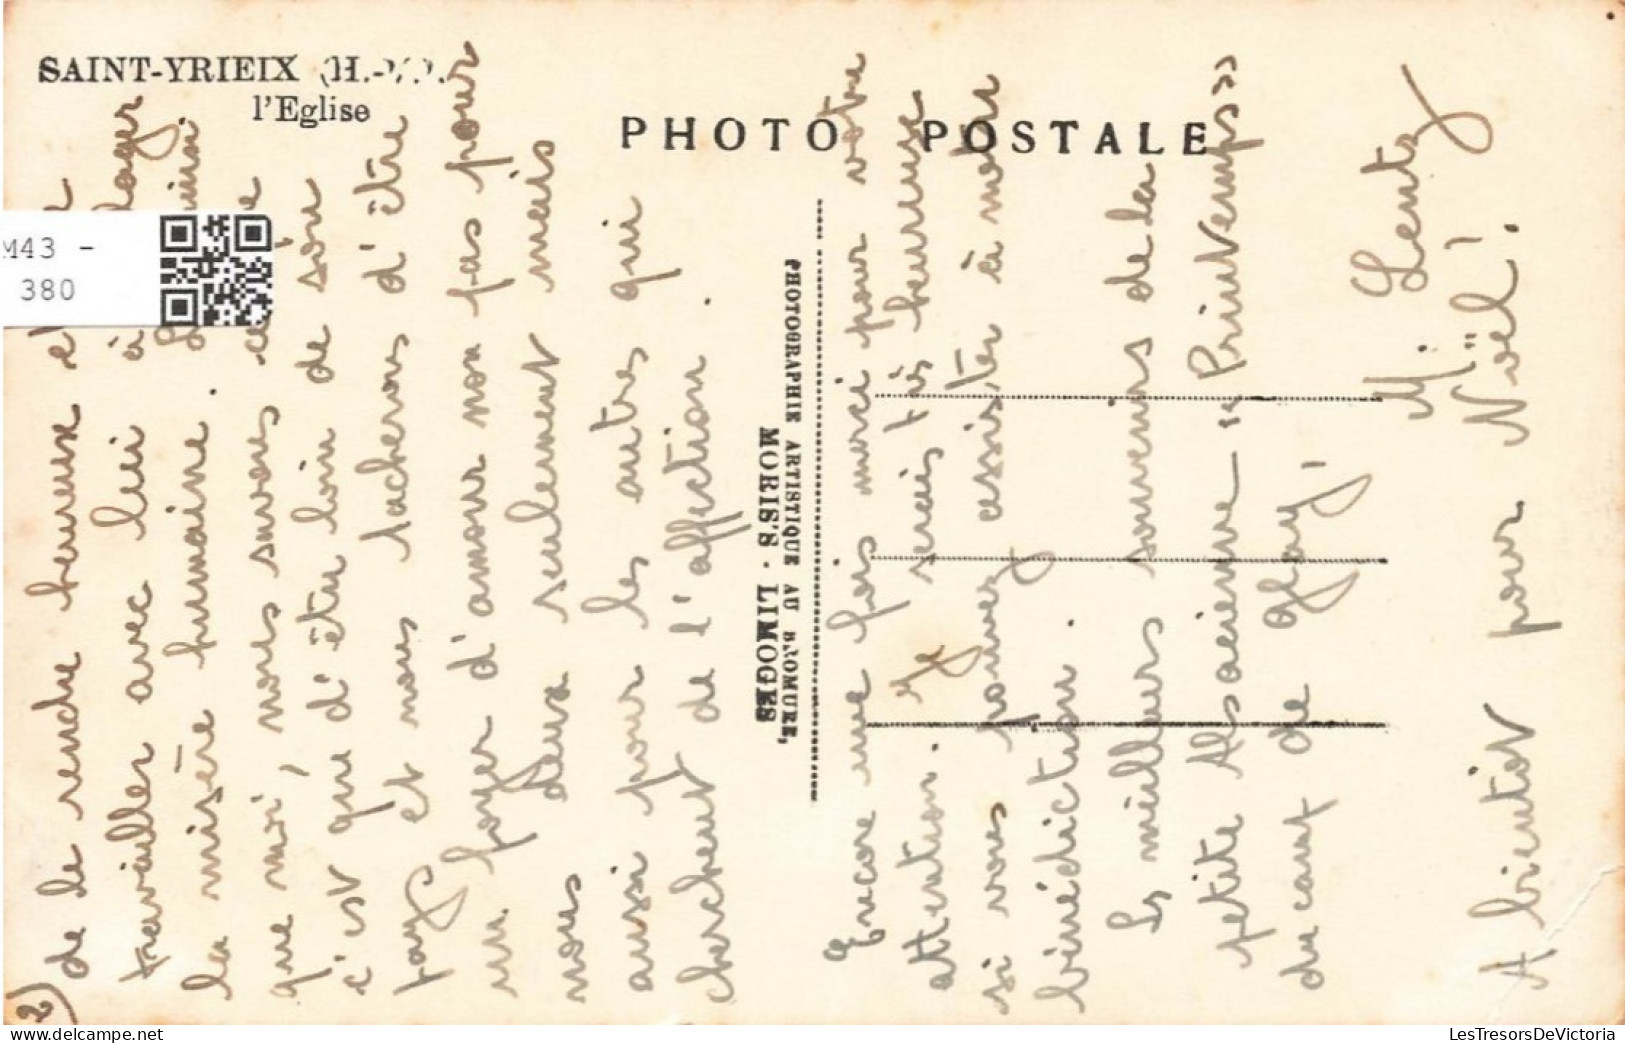 SAINT-YRIEIX (H.-V.)
l'Eglise
PHOTO POSTALE
PHOTOGRAPHIE ARTISTIQUE AU BROMURE,
MORIS'S - LIMOGES
M43 -
380
2)
de le rendre heureux et
travailler avec lui à
la misère humaine.
que moi, nous savons ce
c'est que d'être loin de son
pays et nous tacherons d'être
un foyer d'amour non pas pour
nous deux seulement mais
aussi pour les autres qui
cherchent de l'affection.
Encore une fois merci pour votre
attention. Je serais très heureuse
si vous pouvez assister à notre
bénédiction.
Les meilleurs souvenirs de la
petite Alsacienne "Printemps"
du camp de Glay,
M. Lentz
A bientôt pour Noël!
LesTresorsDeVictoria
delcampe.net